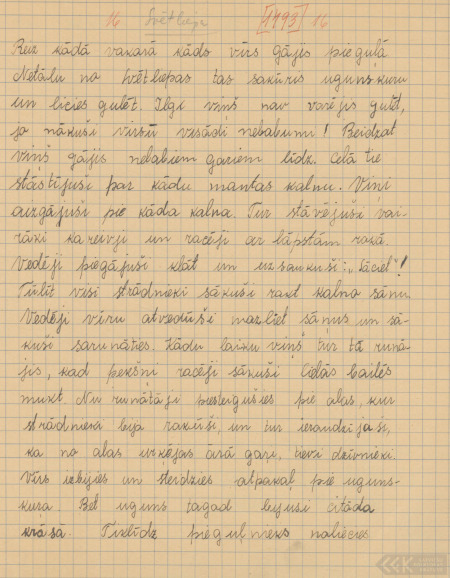 16 Svētliepa 1793 16
Reiz kādā vakarā kāds vīrs gājis pieguļā
Netālu no svētliepas tas sakūris ugunskuru
un licies gulēt. Ilgi viņš nav varējis gulēt,
jo nākuši virsū visādi nelabumi! Beidzot
viņš gājis nelabiem gariem līdz. Ceļā tie
stāstījuši par kādu mantas kalnu. Viņi
aizgājuši pie kāda kalna. Tur stāvējuši vai-
rāki kareivji un racēji ar lāpstām rokā.
Vedēji piegājuši klāt un uzsaukuši: „Sāciet"!
Tūlīt visi strādnieki sākuši rakt kalna sānu
Vedēji vīru atveduši mazliet sāņus un sā-
kuši sarunāties. Kādu laiku viņš tur tā runā-
jis, kad pēkšņi racēji sākuši lielās bailēs
mukt. Nu runātāji piesteigušies pie alas, kur
strādnieki bija rakuši, un tur ieraudzījuši,
ka no alas izkāpjas ārā gari, zvēri dzīvnieki.
Vīrs izbijies un steidzies atpakaļ pie uguns-
kura. Bet uguns tagad bijusi citāda
krāsā. Tiklīdz pieguļnieks noliecies